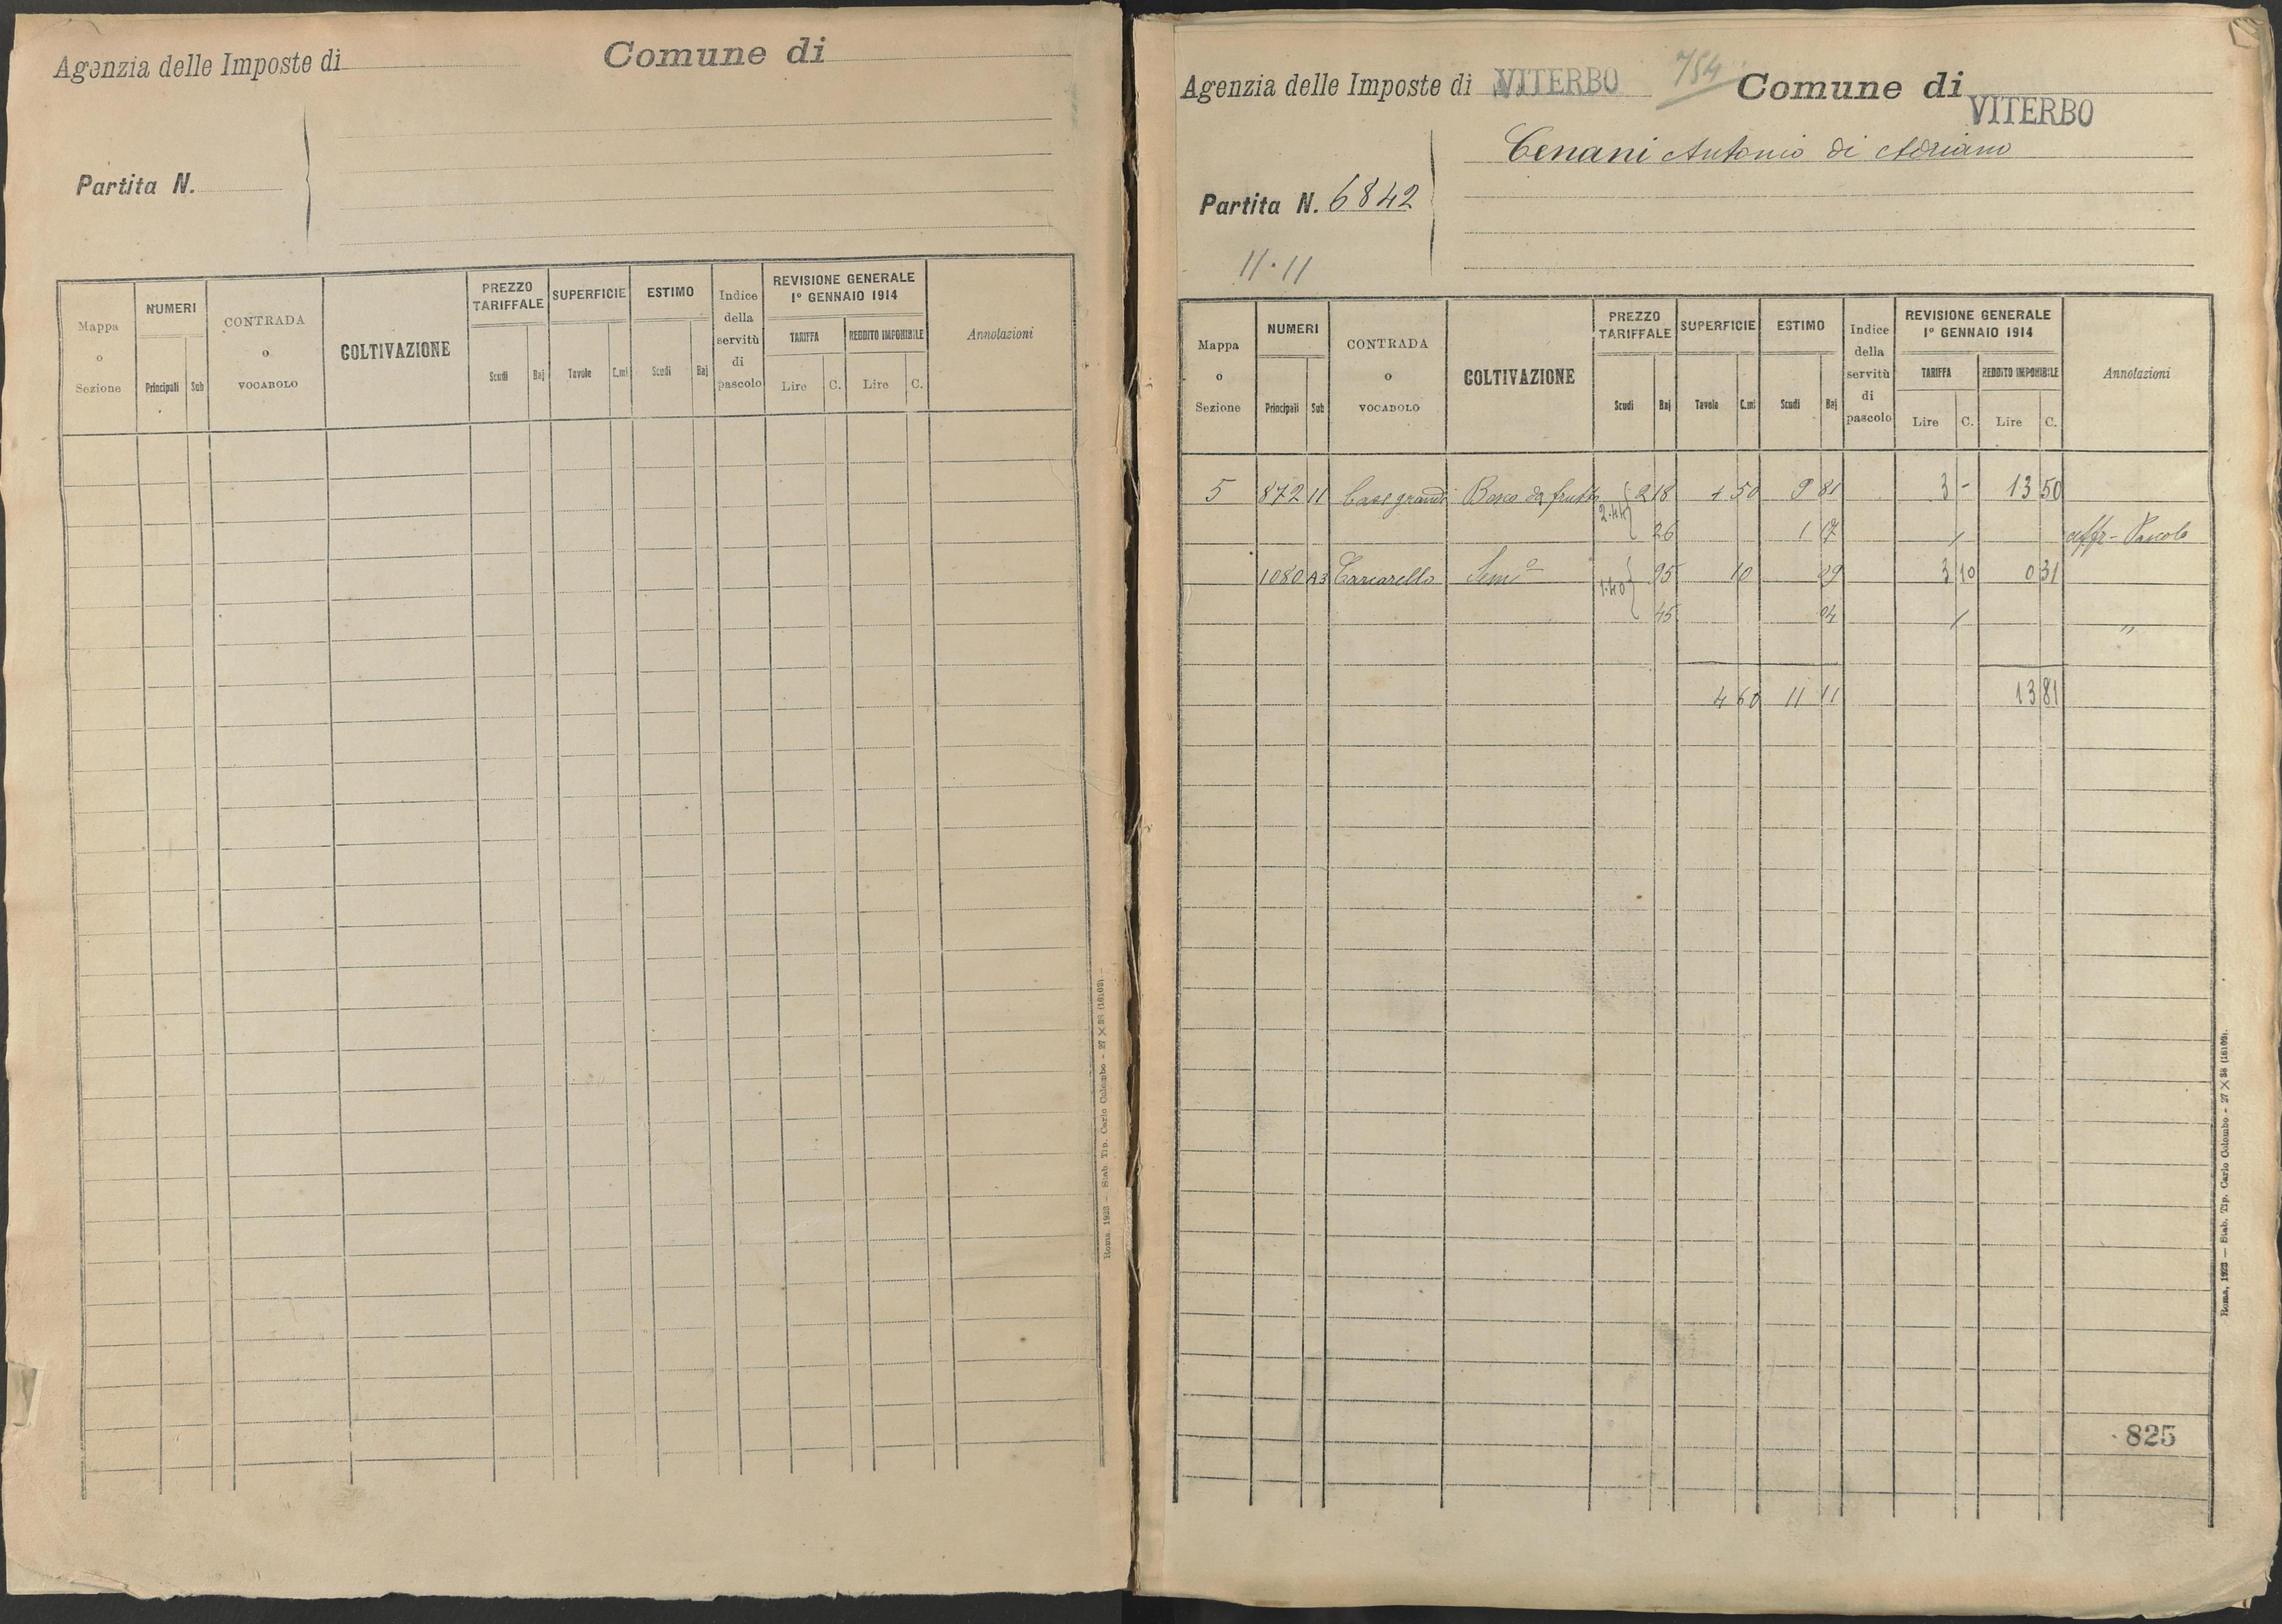 Agenzia delle Imposte di
Comune di
Partita N.
Mappa o Sezione
NUMERI
Principali
Sub
CONTRADA o VOCABOLO
COLTIVAZIONE
PREZZO TARIFFALE
Scudi
Baj
SUPERFICIE
Tavole
C.mi
ESTIMO
Scudi
Baj
Indice della servitù di pascolo
REVISIONE GENERALE
1° GENNAIO 1914
TARIFFA
REDDITO IMPONIBILE
Lire
C.
Lire
C.
Annotazioni
Roma, 1923 — Stab. Tip. Carlo Colombo - 27 × 38 (16109).
Agenzia delle Imposte di VITERBO
754
Comune di VITERBO
Cenani Antonio di Adriano
Partita N. 6842
11.11
Mappa o Sezione
NUMERI
Principali
Sub
CONTRADA o VOCABOLO
COLTIVAZIONE
PREZZO TARIFFALE
Scudi
Baj
SUPERFICIE
Tavole
C.mi
ESTIMO
Scudi
Baj
Indice della servitù di pascolo
REVISIONE GENERALE
1° GENNAIO 1914
TARIFFA
REDDITO IMPONIBILE
Lire
C.
Lire
C.
Annotazioni
5 872 11 Case grandi Bosco da frutto 2 18 4 50 9 81 3 - 13 50
2.44
26 1 17 / affr- Pascolo
1080 A3 Carcarella Sem.o 95 10 09 3 10 0 31
1.40
45 04 / "
4 60 11 11 13 81
825
Roma, 1923 — Stab. Tip. Carlo Colombo - 27 × 38 (16109).